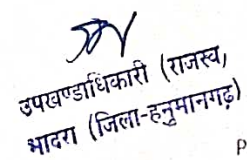 उपखण्डाधिकारी (राजस्व,
भादरा (जिला-हनुमानगढ़)
P